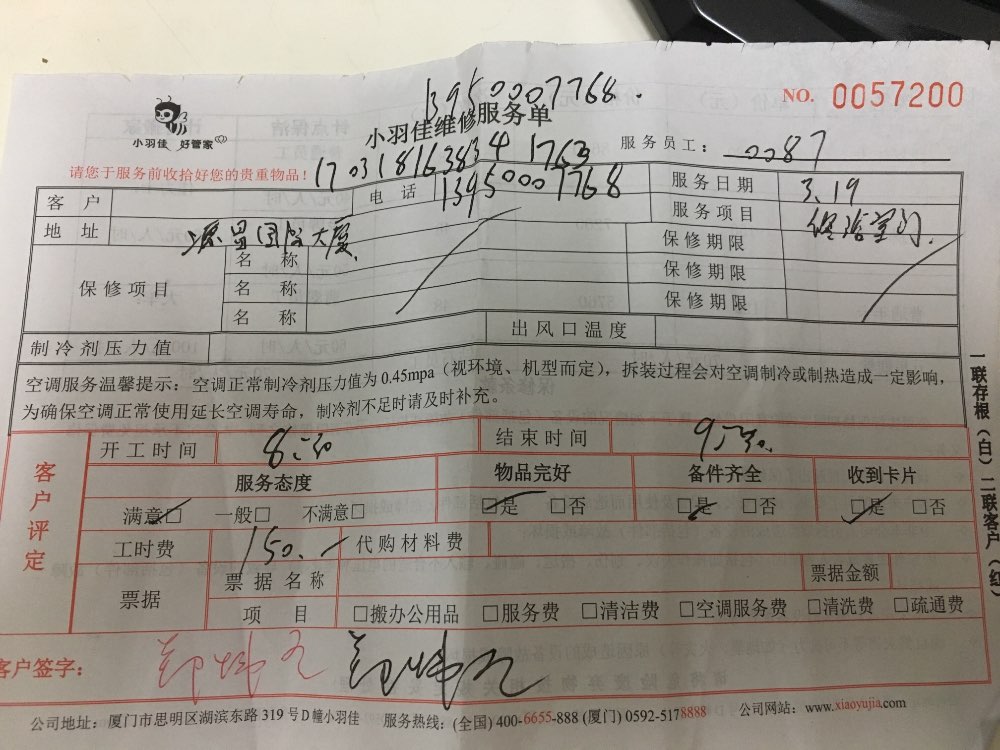 13950007768.
NO. 0057200
小羽佳 好管家
小羽佳维修服务单
服务员工: 0087
请您于服务前收拾好您的贵重物品!
170318163834 1763
客户 电话 13950007768 服务日期 3.19
地址 国际大厦 服务项目
保修项目 名称 保修期限
名称 保修期限
名称 保修期限
制冷剂压力值 出风口温度
空调服务温馨提示:空调正常制冷剂压力值为0.45mpa(视环境、机型而定),拆装过程会对空调制冷或制热造成一定影响,
为确保空调正常使用延长空调寿命,制冷剂不足时请及时补充。
客户评定
开工时间 8:30 结束时间 9:30
服务态度 物品完好 备件齐全 收到卡片
满意□ 一般□ 不满意□ □是 □否 □是 □否 □是 □否
工时费 150. 代购材料费
票据 票据名称 票据金额
项目 □搬办公用品 □服务费 □清洁费 □空调服务费 □清洗费 □疏通费
客户签字:
公司地址:厦门市思明区湖滨东路319号D幢小羽佳 服务热线:(全国)400-6655-888 (厦门)0592-5178888 公司网站:www.xiaoyujia.com
一联存根(白)二联客户(红)